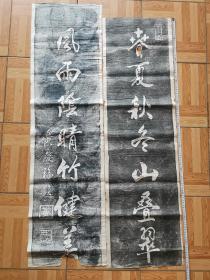 春夏秋冬山叠翠
風雨陰晴竹健美